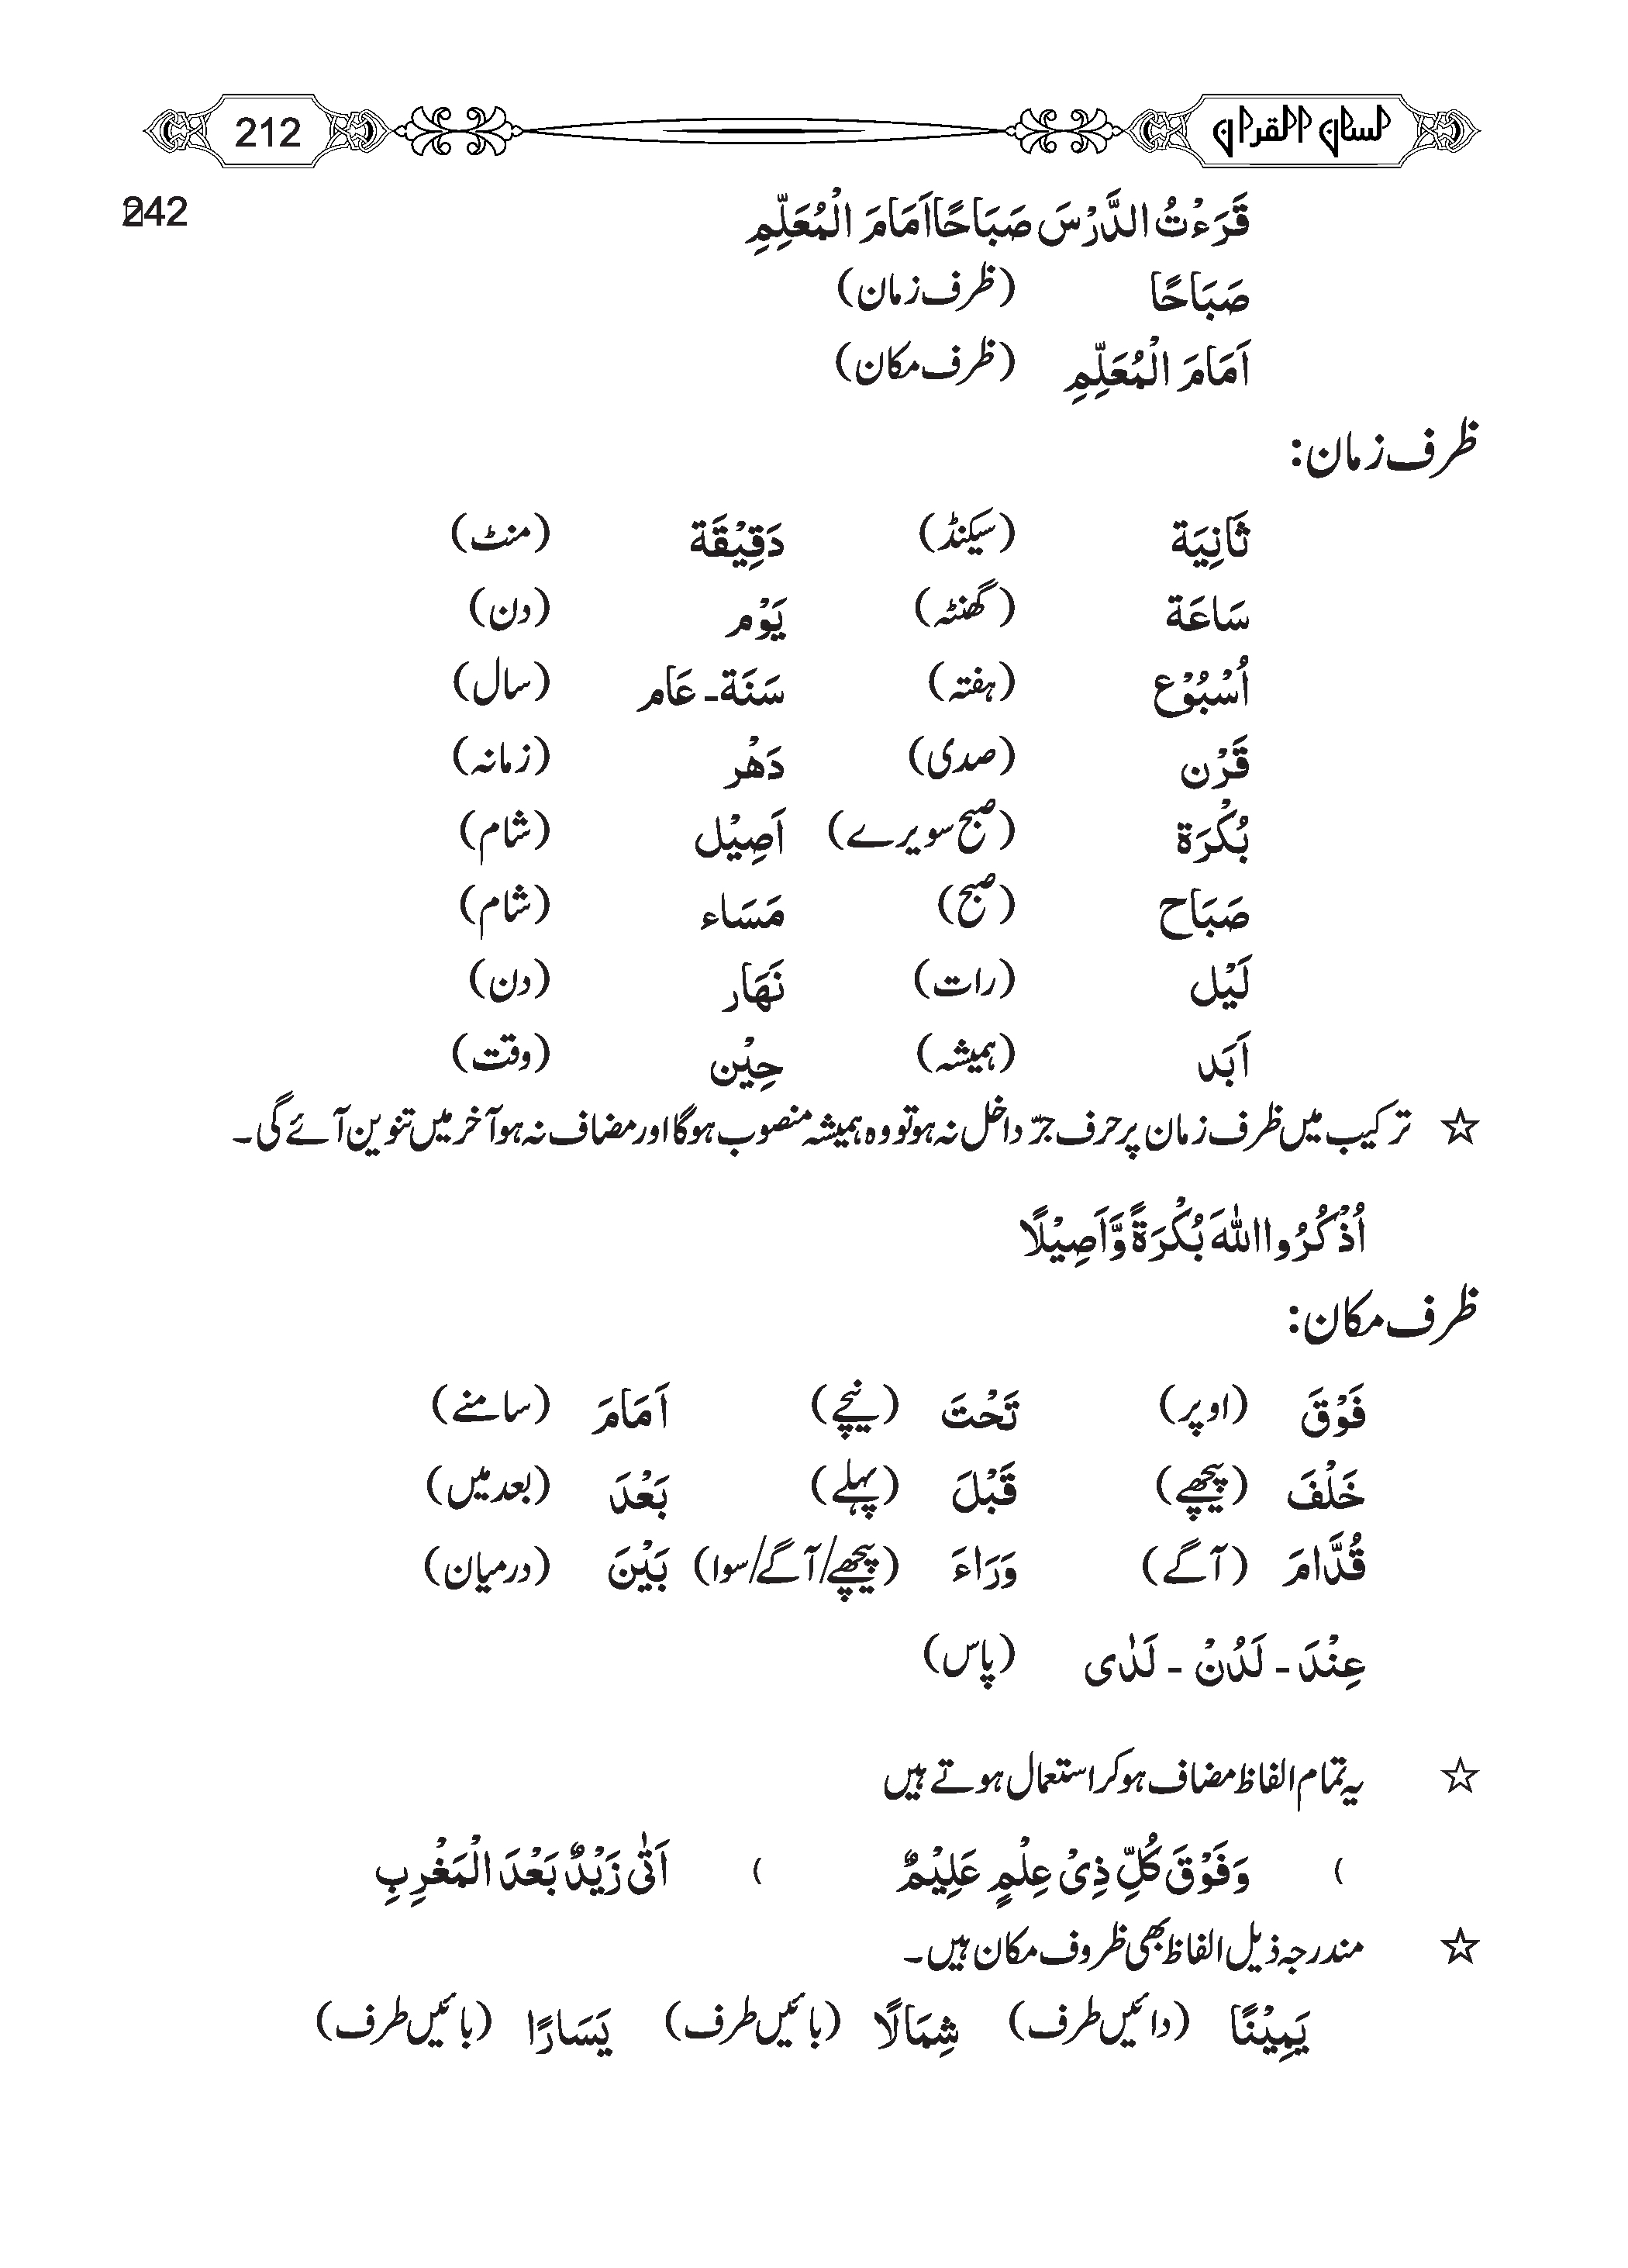 لسان القرآن 212
242
قَرَءْتُ الدَّرْسَ صَبَاحًا اَمَامَ الْمُعَلِّمِ
صَبَاحًا (ظرف زمان)
اَمَامَ الْمُعَلِّمِ (ظرف مکان)
ظرف زمان:
ثَانِيَة (سیکنڈ) دَقِيْقَة (منٹ)
سَاعَة (گھنٹہ) يَوْم (دن)
اُسْبُوْع (ہفتہ) سَنَة - عَام (سال)
قَرْن (صدی) دَهْر (زمانہ)
بُكْرَة (صبح سویرے) اَصِيْل (شام)
صَبَاح (صبح) مَسَاء (شام)
لَيْل (رات) نَهَار (دن)
اَبَد (ہمیشہ) حِيْن (وقت)
☆ ترکیب میں ظرف زمان پر حرف جرّ داخل نہ ہو تو وہ ہمیشہ منصوب ہوگا اور مضاف نہ ہو آخر میں تنوین آئے گی۔
اُذْكُرُوا اللهَ بُكْرَةً وَّاَصِيْلًا
ظرف مکان:
فَوْقَ (اوپر) تَحْتَ (نیچے) اَمَامَ (سامنے)
خَلْفَ (پیچھے) قَبْلَ (پہلے) بَعْدَ (بعد میں)
قُدَّامَ (آگے) وَرَاءَ (پیچھے/آگے/سوا) بَيْنَ (درمیان)
عِنْدَ - لَدُنْ - لَدٰى (پاس)
☆ یہ تمام الفاظ مضاف ہو کر استعمال ہوتے ہیں
) وَفَوْقَ كُلِّ ذِىْ عِلْمٍ عَلِيْمٌ ) اَتٰى زَيْدٌ بَعْدَ الْمَغْرِبِ
☆ مندرجہ ذیل الفاظ بھی ظروف مکان ہیں۔
يَمِيْنًا (دائیں طرف) شِمَالًا (بائیں طرف) يَسَارًا (بائیں طرف)